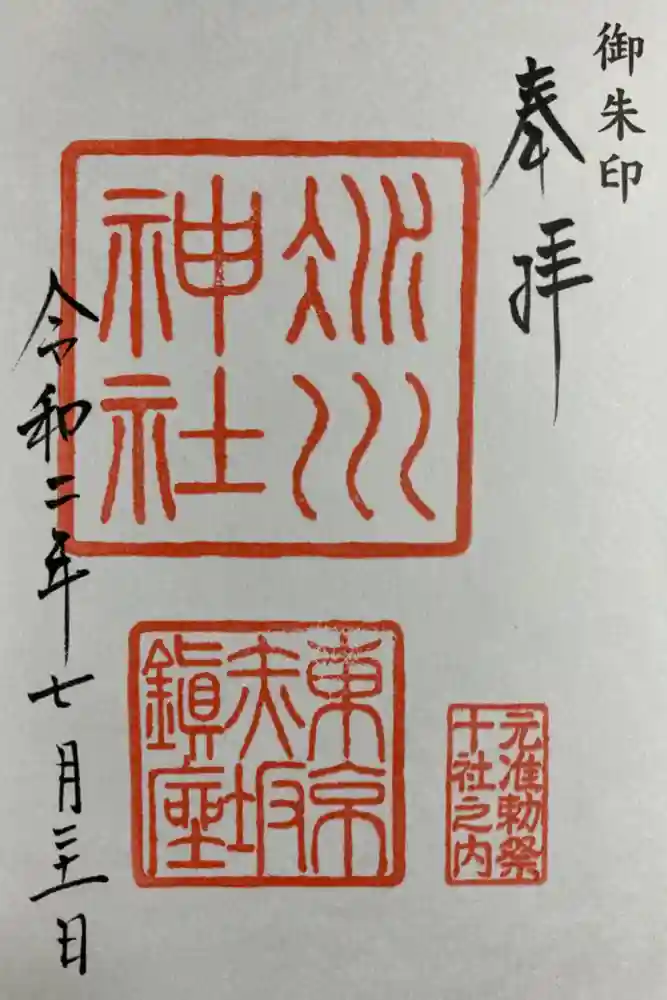 御朱印
奉拝
冰川
神社
東京
赤坂
鎭座
元准勅祭
十社之内
令和二年七月二十一日